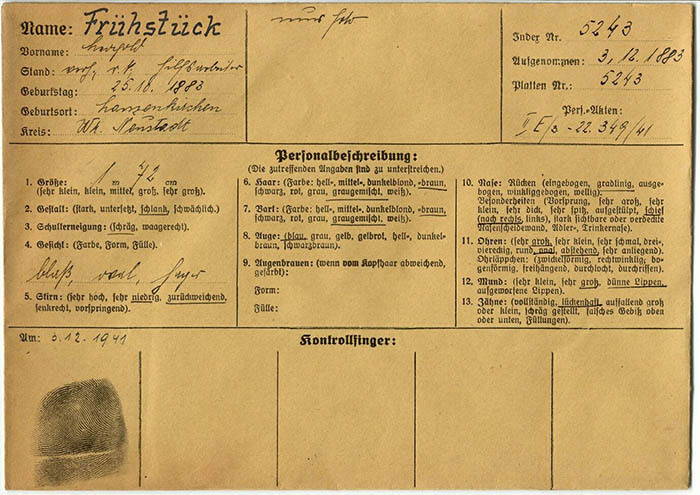 Name: Frühstück
nur foto
Index Nr. 5243
Vorname: Leopold
Aufgenommen: 3.12.1883
Stand: verh., r.k., Hilfsarbeiter
Platten Nr.: 5243
Geburtstag: 25.10.1883
Geburtsort: Lanzenkirchen
Kreis: Wr. Neustadt
Pers.-Akten:
II E/3 -22.349/41
Personalbeschreibung:
(Die zutreffenden Angaben sind zu unterstreichen.)
1. Größe: 1 m 72 cm
(sehr klein, klein, mittel, groß, sehr groß).
2. Gestalt: (stark, untersetzt, schlank, schwächlich.)
3. Schulterneigung: (schräg, waagerecht.)
4. Gesicht: (Farbe, Form, Fülle).
blaß, oval, hager
5. Stirn: (sehr hoch, sehr niedrig, zurückweichend,
senkrecht, vorspringend).
6. Haar: (Farbe: hell-, mittel-, dunkelblond, -braun,
schwarz, rot, grau, graugemischt, weiß).
7. Bart: (Farbe: hell-, mittel-, dunkelblond, -braun,
schwarz, rot, grau, graugemischt, weiß.)
8. Auge: (blau, grau, gelb, gelbrot, hell-, dunkel-
braun, schwarzbraun).
9. Augenbrauen: (wenn vom Kopfhaar abweichend,
gefärbt):
Form:
Fülle:
10. Nase: Rücken (eingebogen, gradlinig, ausge-
bogen, winkliggebogen, wellig).
Besonderheiten (Vorsprung, sehr groß, sehr
klein, sehr dick, sehr spitz, aufgestülpt, schief
(nach rechts, links), stark sichtbare oder verdeckte
Nasenscheidewand, Adler-, Trinkernase).
11. Ohren: (sehr groß, sehr klein, sehr schmal, drei-,
viereckig, rund, oval, abstehend, sehr anliegend).
Ohrläppchen: (zwickelförmig, rechtwinklig, bo-
genförmig, freihängend, durchlocht, durchrissen).
12. Mund: (sehr klein, sehr groß, dünne Lippen,
aufgeworfene Lippen).
13. Zähne: (vollständig, lückenhaft, auffallend groß
oder klein, schräg gestellt, falsches Gebiß oben
oder unten, Füllungen).
Am: 3.12.1941
Kontrollfinger: